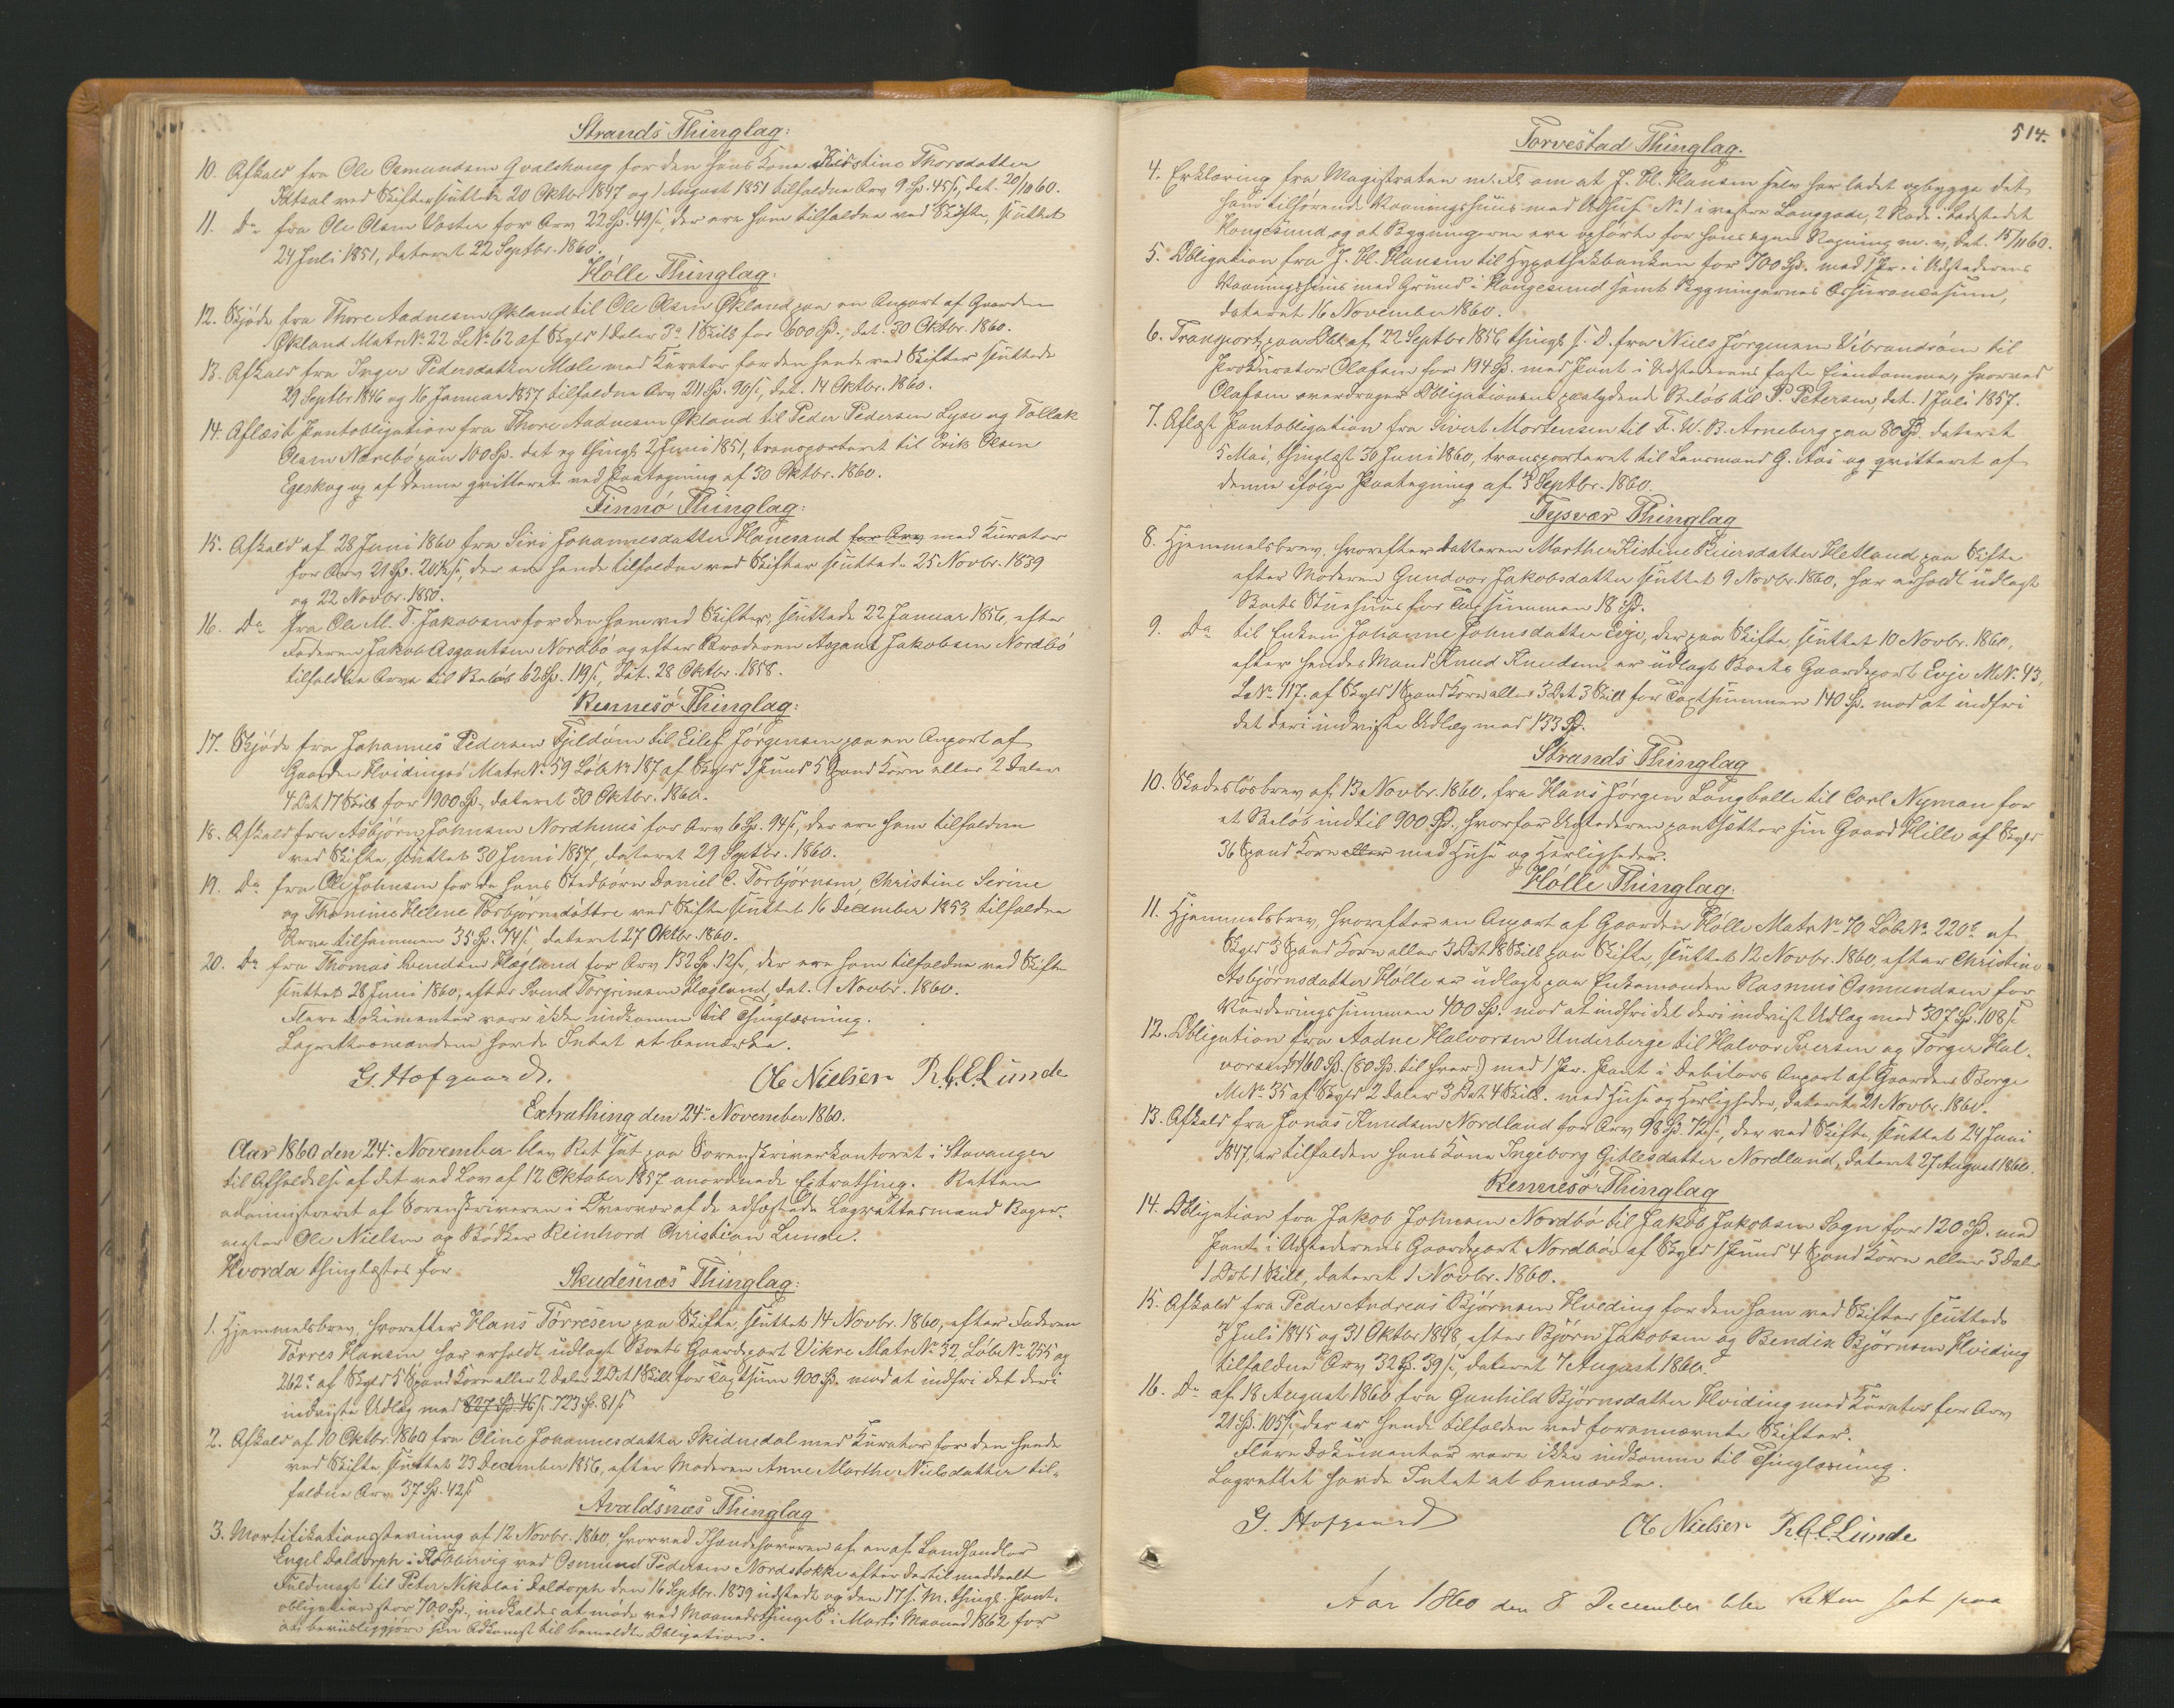 Strands Thinglag:
10. Afkald fra Ole Osmundsen Qvalshoug for den hans Kone Kirstine Thorsdatter
Idsal ved Skifter sluttede 20 Oktbr 1847 og 1 August 1851 tilfaldne Arv 9 Sp. 45 s, dat. 20/10 60.
11. Do fra Ole Olsen for Arv 22 Sp. 49 s, der ere ham tilfalden ved Skifte, sluttet
24 Juli 1851, dateret 22 Septbr. 1860.
Hölle Thinglag:
12. Skjöde fra Thore Aadnesen Økland til Ole Olsen Økland paa en Anpart af Gaarden
Økland Matr No 22 L No 62 af Skyld 1 Daler 3 o 1 Skill for 600 Sp., dat. 30 Oktbr. 1860.
13. Afkald fra Inger Pedersdatter Mæle med Kurator for den hende ved Skifter sluttede
29 Septbr 1846 og 16 Januar 1857 tilfaldne Arv 211 Sp. 90 s, dat. 14 Oktbr. 1860.
14. Aflæst Pantobligation fra Thore Aadnesen Økland til Peder Pedersen Lyse og Tollak
Olsen Nærebö paa 100 Sp. dat og thingl 2 Juni 1851, transporteret til Erik Olsen
Egeskog og af denne qvitteret ved Paategning af 30 Oktbr. 1860.
Finnö Thinglag:
15. Afkald af 28 Juni 1860 fra Siri Johannesdatter Hanesand for Arv med Kurator
for Arv 21 Sp. 20 s, der ere hende tilfalden ved Skifter sluttede 25 Novbr. 1839
og 22 Novbr. 1850.
16. Do fra Ole M. T. Jakobsen for den ham ved Skifter, sluttede 22 Januar 1856, efter
Faderen Jakob Asgautsen Nordbö og efter Broderen Asgaut Jakobsen Nordbö
tilfaldne Arv til Belöb 62 Sp. 119 s, Dat. 28 Oktbr. 1858.
Rennesö Thinglag:
17. Skjöde fra Johannes Pedersen Fjeldöen til Eilef Jörgensen paa en Anpart af
Gaarden Hvidingsö Matr No 59 Löb No 187 af Skyld 1 Pund 5 Spand Korn eller 2 Daler
4 Ort 17 Skill for 1900 Sp., dateret 30 Oktbr. 1860.
18. Afkald fra Asbjörn Johnsen Nordhuus for Arv 6 Sp. 94 s, der ere ham tilfalden
ved Skifte, sluttet 30 Juni 1857, dateret 29 Septbr. 1860.
19. Do fra Ole Johnsen for de hans Stedbörn Daniel C. Torbjörnsen, Christine Serine
og Thomine Helene Torbjörnsdöttre ved Skifte sluttet 16 December 1853 tilfaldne
Arve tilsammen 35 Sp. 74 s dateret 27 Oktbr. 1860.
20. Do fra Thomas Svendsen Hægland for Arv 132 Sp. 12 s, der ere ham tilfalden ved Skifte
sluttet 28 Juni 1860, efter Svend Torgrimsen Hægland, dat. 1 Novbr. 1860.
Flere Dokumenter vare ikke indkomne til Thinglæsning.
Lagrettesmændene havde Intet at bemærke.
G. Hofgaard. Ole Nielsen R. C. E. Lunde
Extrathing den 24de November 1860.
Aar 1860 den 24de November blev Ret sat paa Sorenskriverkontoret i Stavanger
til Afholdelse af det ved Lov af 12 Oktober 1857 anordnede Extrathing. Retten
administreret af Sorenskriveren i Overvær af de edfæstede Lagrettesmænd Bager-
mester Ole Nielsen og Bödker Reinhard Christian Lunde.
Hvorda thinglæstes for
Skudenæs Thinglag:
1. Hjemmelsbrev, hvorefter Hans Törresen paa Skifte, sluttet 14 Novbr. 1860, efter Faderen
Törres Hansen har erholdt udlagt Boets Gaardpart Vikre Matr No 52 Löb No 255 og
262 c af Skyld 5 Spand Korn eller 2 Daler 2 Ort 1 Skill for Taxtsum 900 Sp. mod at indfri det deri
indviste Udlæg med 827 Sp 46 s 723 Sp. 81 s
2. Afkald af 10 Oktbr. 1860 fra Oline Johannesdatter Skidnedal med Kurator for den hende
ved Skifte, sluttet 23 December 1856, efter Moderen Anne Marthe Nielsdatter til-
faldne Arv 37 Sp. 42 s
Avaldsnæs Thinglag
3. Mortifikationsstevning af 12 Novbr. 1860, hvorved Ihændehaveren af en af Landhandler
Engel Daldorph i Kobbervig ved Osmund Pedersen Nordstokke efter dertil meddeelt
Fuldmagt til Peter Nikolai Daldorph den 16 Septbr. 1839 udstedt og den 17 s. M. thingl. Pant-
obligation stor 700 Sp., indkaldes at möde ved Maanedsthinget i Marts Maaned 1862 for
at beviisliggjöre sin Adkomst til bemeldte Obligation.
514.
Torvestad Thinglag.
4. Erklæring fra Magistraten m. Fl. om at J. H. Hansen selv har ladet opbygge det
ham tilhörende Vaaningshuus med Udhuse No 1 i vestre Langgade, 2 Rode i Ladstedet
Hougesund, og at Bygningerne ere opförte for hans egen Regning m. v, dat. 15/11 60.
5. Obligation fra J. H. Hansen til Hypothekbanken for 700 Sp. med 1 Pr. i Udstederens
Vaaningshuus med Grund i Hougesund samt Bygningernes Assurancesum,
dateret 16 November 1860.
6. Transport paa Obl. af 22 Septbr 1856 thingl s. D. fra Niels Jörgensen Vibrandsöen til
Prokurator Olafsen for 194 Sp. med Pant i Udstederens faste Eiendomme, hvorved
Olafsen overdrager Obligationens paalydende Belöb til P. Petersen, dat. 1 Juli 1857.
7. Aflæst Pantobligation fra Sivert Mortensen til F. W. B. Arneberg paa 80 Sp. dateret
5 Mai, thinglæst 30 Juni 1860, transporteret til Lensmand G. Aas og qvitteret af
denne ifölge Paategning af 3 Septbr. 1860.
Tysvær Thinglag
8. Hjemmelsbrev, hvorefter Datteren Marthe Kistine Reiersdatter Hetland paa Skifte
efter Moderen Gundvor Jakobsdatter sluttet 9 Novbr. 1860, har erholdt udlagt
Boets Stuehuus for Taxtsummen 18 Sp.
9. Do til Enken Johanne Johnsdatter Evje, der paa Skifte, sluttet 10 Novbr. 1860,
efter hendes Mand Knud Knudsen, er udlagt Boets Gaardpart Evje M No. 43,
L No. 117. af Skyld 1 Spand Korn eller 3 Ort 3 Skill for Taxtsummen 140 Sp. mod at indfri
det deri indviste Udlæg med 133 Sp.
Strands Thinglag
10. Skadeslösbrev af 13 Novbr. 1860, fra Hans Jörgen Langballe til Carl Nyman for
et Belöb indtil 900 Sp. hvorfor Udstederen pantsætter sin Gaard Hille af Skyld
36 Spand Korn eller med Huse og Herligheder.
Hölle Thinglag:
11. Hjemmelsbrev, hvorefter en Anpart af Gaarden Hölle Matr No. 70 Löb No. 220 c af
Skyld 3 Spand Korn eller 3 Ort 18 Skill paa Skifte, sluttet 12 Novbr. 1860, efter Christine
Asbjörnsdatter Hölle er udlagt paa Enkemanden Rasmus Osmundsen for
Vurderingssummen 400 Sp. mod at indfri det deri indvist Udlæg med 307 Sp. 108 s
12. Obligation fra Aadne Halvorsen Underberge til Halvor Iversen og Torger Hal-
vorsen 160 Sp. (80 Sp. til hver) med 1 Pr. Pant i Debitors Anpart af Gaarden Berge
M No. 35 af Skyld 2 Daler 3 Ort 4 Skill. med Huse og Herligheder, dateret 21 Novbr. 1860.
13. Afkald fra Jonas Knudsen Nordland for Arv 98 Sp. 72 s, der ved Skifte, sluttet 24 Juni
1847, er tilfalden hans Kone Ingeborg Gitlesdatter Nordland, dateret 27 August 1860.
Rennesö Thinglag
14. Obligation fra Jakob Johnsen Nordbö til Jakob Jakobsen Sogn for 120 Sp. med
Pant i Udstederens Gaardpart Nordbö af Skyld 1 Pund 4 Spand Korn eller 3 Daler
1 Ort 1 Skill, dateret 1 Novbr. 1860.
15. Afkald fra Peder Andreas Björnsen Hviding for den ham ved Skifter sluttede
3 Juli 1845 og 31 Oktbr 1848 efter Björn Jakobsen og Bendik Björnsen Hviding
tilfaldne Arv 32 Sp. 39 s, dateret 7 August 1860.
16. Do af 18 August 1860 fra Gunhild Björnsdatter Hviding med Kurator for Arv
21 Sp. 105 s, der er hende tilfalden ved forannævnte Skifter.
Flere Dokumenter vare ikke indkomne til Thinglæsning.
Lagrettet havde Intet at bemærke.
G. Hofgaard Ole Nielsen R. C. E. Lunde
Aar 1860 den 8 December blev Retten sat paa